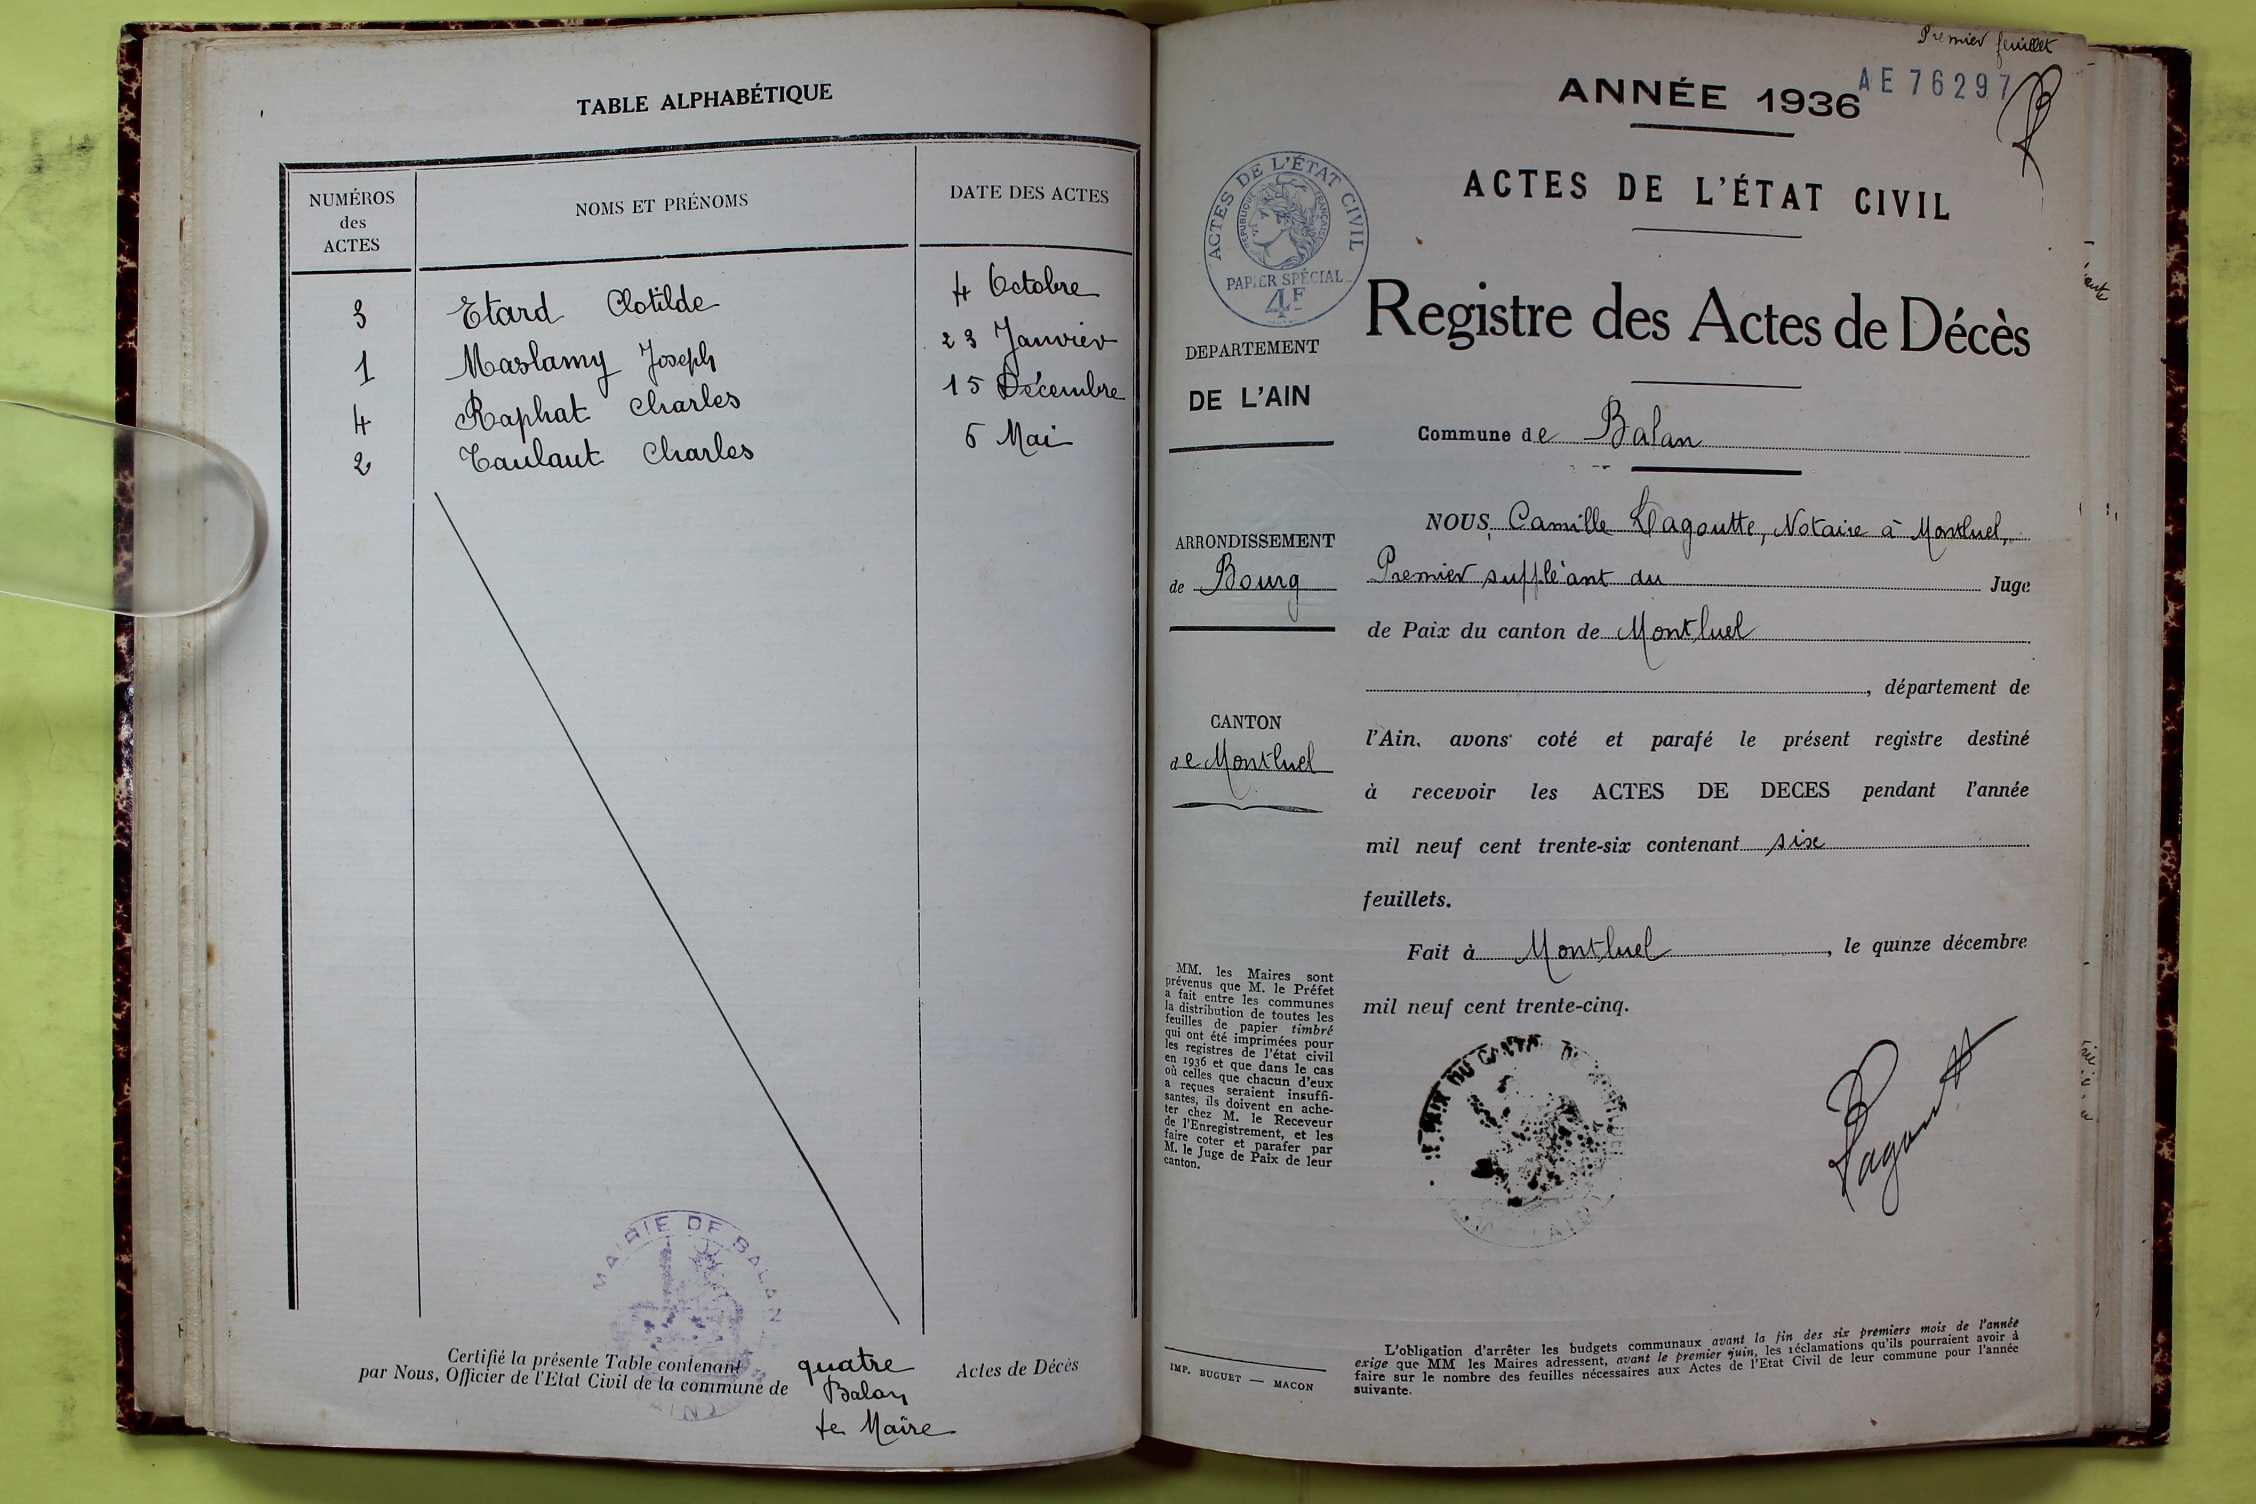 TABLE ALPHABÉTIQUE
NUMÉROS
des
ACTES
NOMS ET PRÉNOMS
DATE DES ACTES
3 Etard Clotilde 4 Octobre
1 Maslamy Joseph 23 Janvier
4 Raphat Charles 15 Décembre
2 Taulaut Charles 6 Mai
MAIRIE DE BALAN
Certifié la présente Table contenant quatre Actes de Décès
par Nous, Officier de l'Etat Civil de la commune de Balan
Le Maire
Premier feuillet
AE 76297
ANNÉE 1936
ACTES DE L'ÉTAT CIVIL
ACTES DE L'ÉTAT CIVIL
RÉPUBLIQUE FRANÇAISE
PAPIER SPÉCIAL
4F
Registre des Actes de Décès
DEPARTEMENT
DE L'AIN
Commune de Balan
ARRONDISSEMENT
de Bourg
CANTON
de Montluel
NOUS, Camille Lagoutte, Notaire à Montluel,
Premier suppléant du Juge
de Paix du canton de Montluel
, département de
l'Ain, avons coté et parafé le présent registre destiné
à recevoir les ACTES DE DECES pendant l'année
mil neuf cent trente-six contenant six
feuillets.
Fait à Montluel, le quinze décembre
mil neuf cent trente-cinq.
Lagoutte
MM. les Maires sont
prévenus que M. le Préfet
a fait entre les communes
la distribution de toutes les
feuilles de papier timbré
qui ont été imprimées pour
les registres de l'état civil
en 1936 et que dans le cas
où celles que chacun d'eux
a reçues seraient insuffi-
santes, ils doivent en ache-
ter chez M. le Receveur
de l'Enregistrement, et les
faire coter et parafer par
M. le Juge de Paix de leur
canton.
IMP. BUGUET — MACON
L'obligation d'arrêter les budgets communaux avant la fin des six premiers mois de l'année
exige que MM les Maires adressent, avant le premier juin, les réclamations qu'ils pourraient avoir à
faire sur le nombre des feuilles nécessaires aux Actes de l'Etat Civil de leur commune pour l'année
suivante.